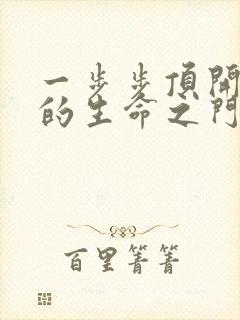 一步步頂開
的生命之門
百里菁菁